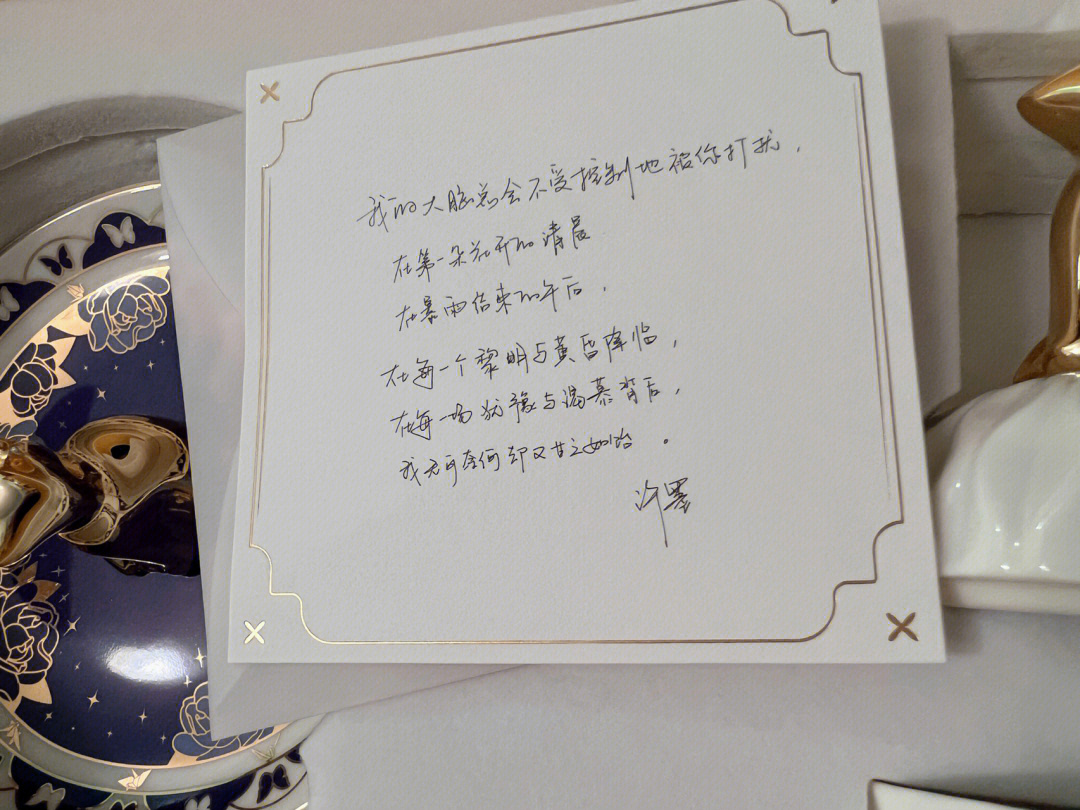 我的大脑总会不受控制地被你打扰，
在第一朵花开的清晨
在暴雨结束的午后，
在每一个黎明与黄昏降临，
在每一场犹豫与渴慕背后，
我无可奈何却又甘之如饴。
许墨